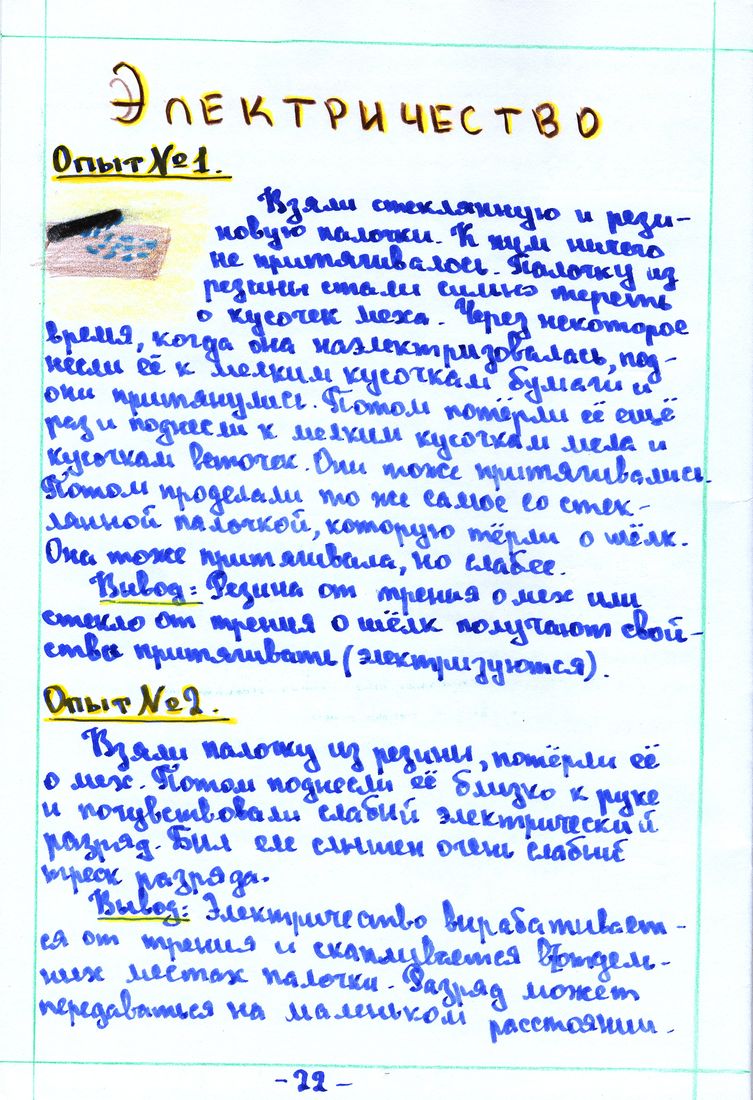 Электричество
Опыт №1.
Взяли стеклянную и рези-
новую палочки. К ним ничего
не притягивалось. Палочку из
резины стали сильно тереть
о кусочек меха. Через некоторое
время, когда она наэлектризовалась, под-
несли её к мелким кусочкам бумаги и
они притянулись. Потом потёрли её ещё
раз и поднесли к мелким кусочкам мела и
кусочкам веточек. Они тоже притягивались.
Потом проделали то же самое со стек-
лянной палочкой, которую тёрли о шёлк.
Она тоже притягивала, но слабее.
Вывод: Резина от трения о мех или
стекло от трения о шёлк получают свой-
ства притягивать (электризуются).
Опыт №2.
Взяли палочку из резины, потёрли её
о мех. Потом поднесли её близко к руке
и почувствовали слабый электрический
разряд. Был еле слышен очень слабый
треск разряда.
Вывод: Электричество вырабатывает-
ся от трения и скапливается в отдель-
ных местах палочки. Разряд может
передаваться на маленьком расстоянии.
-22-